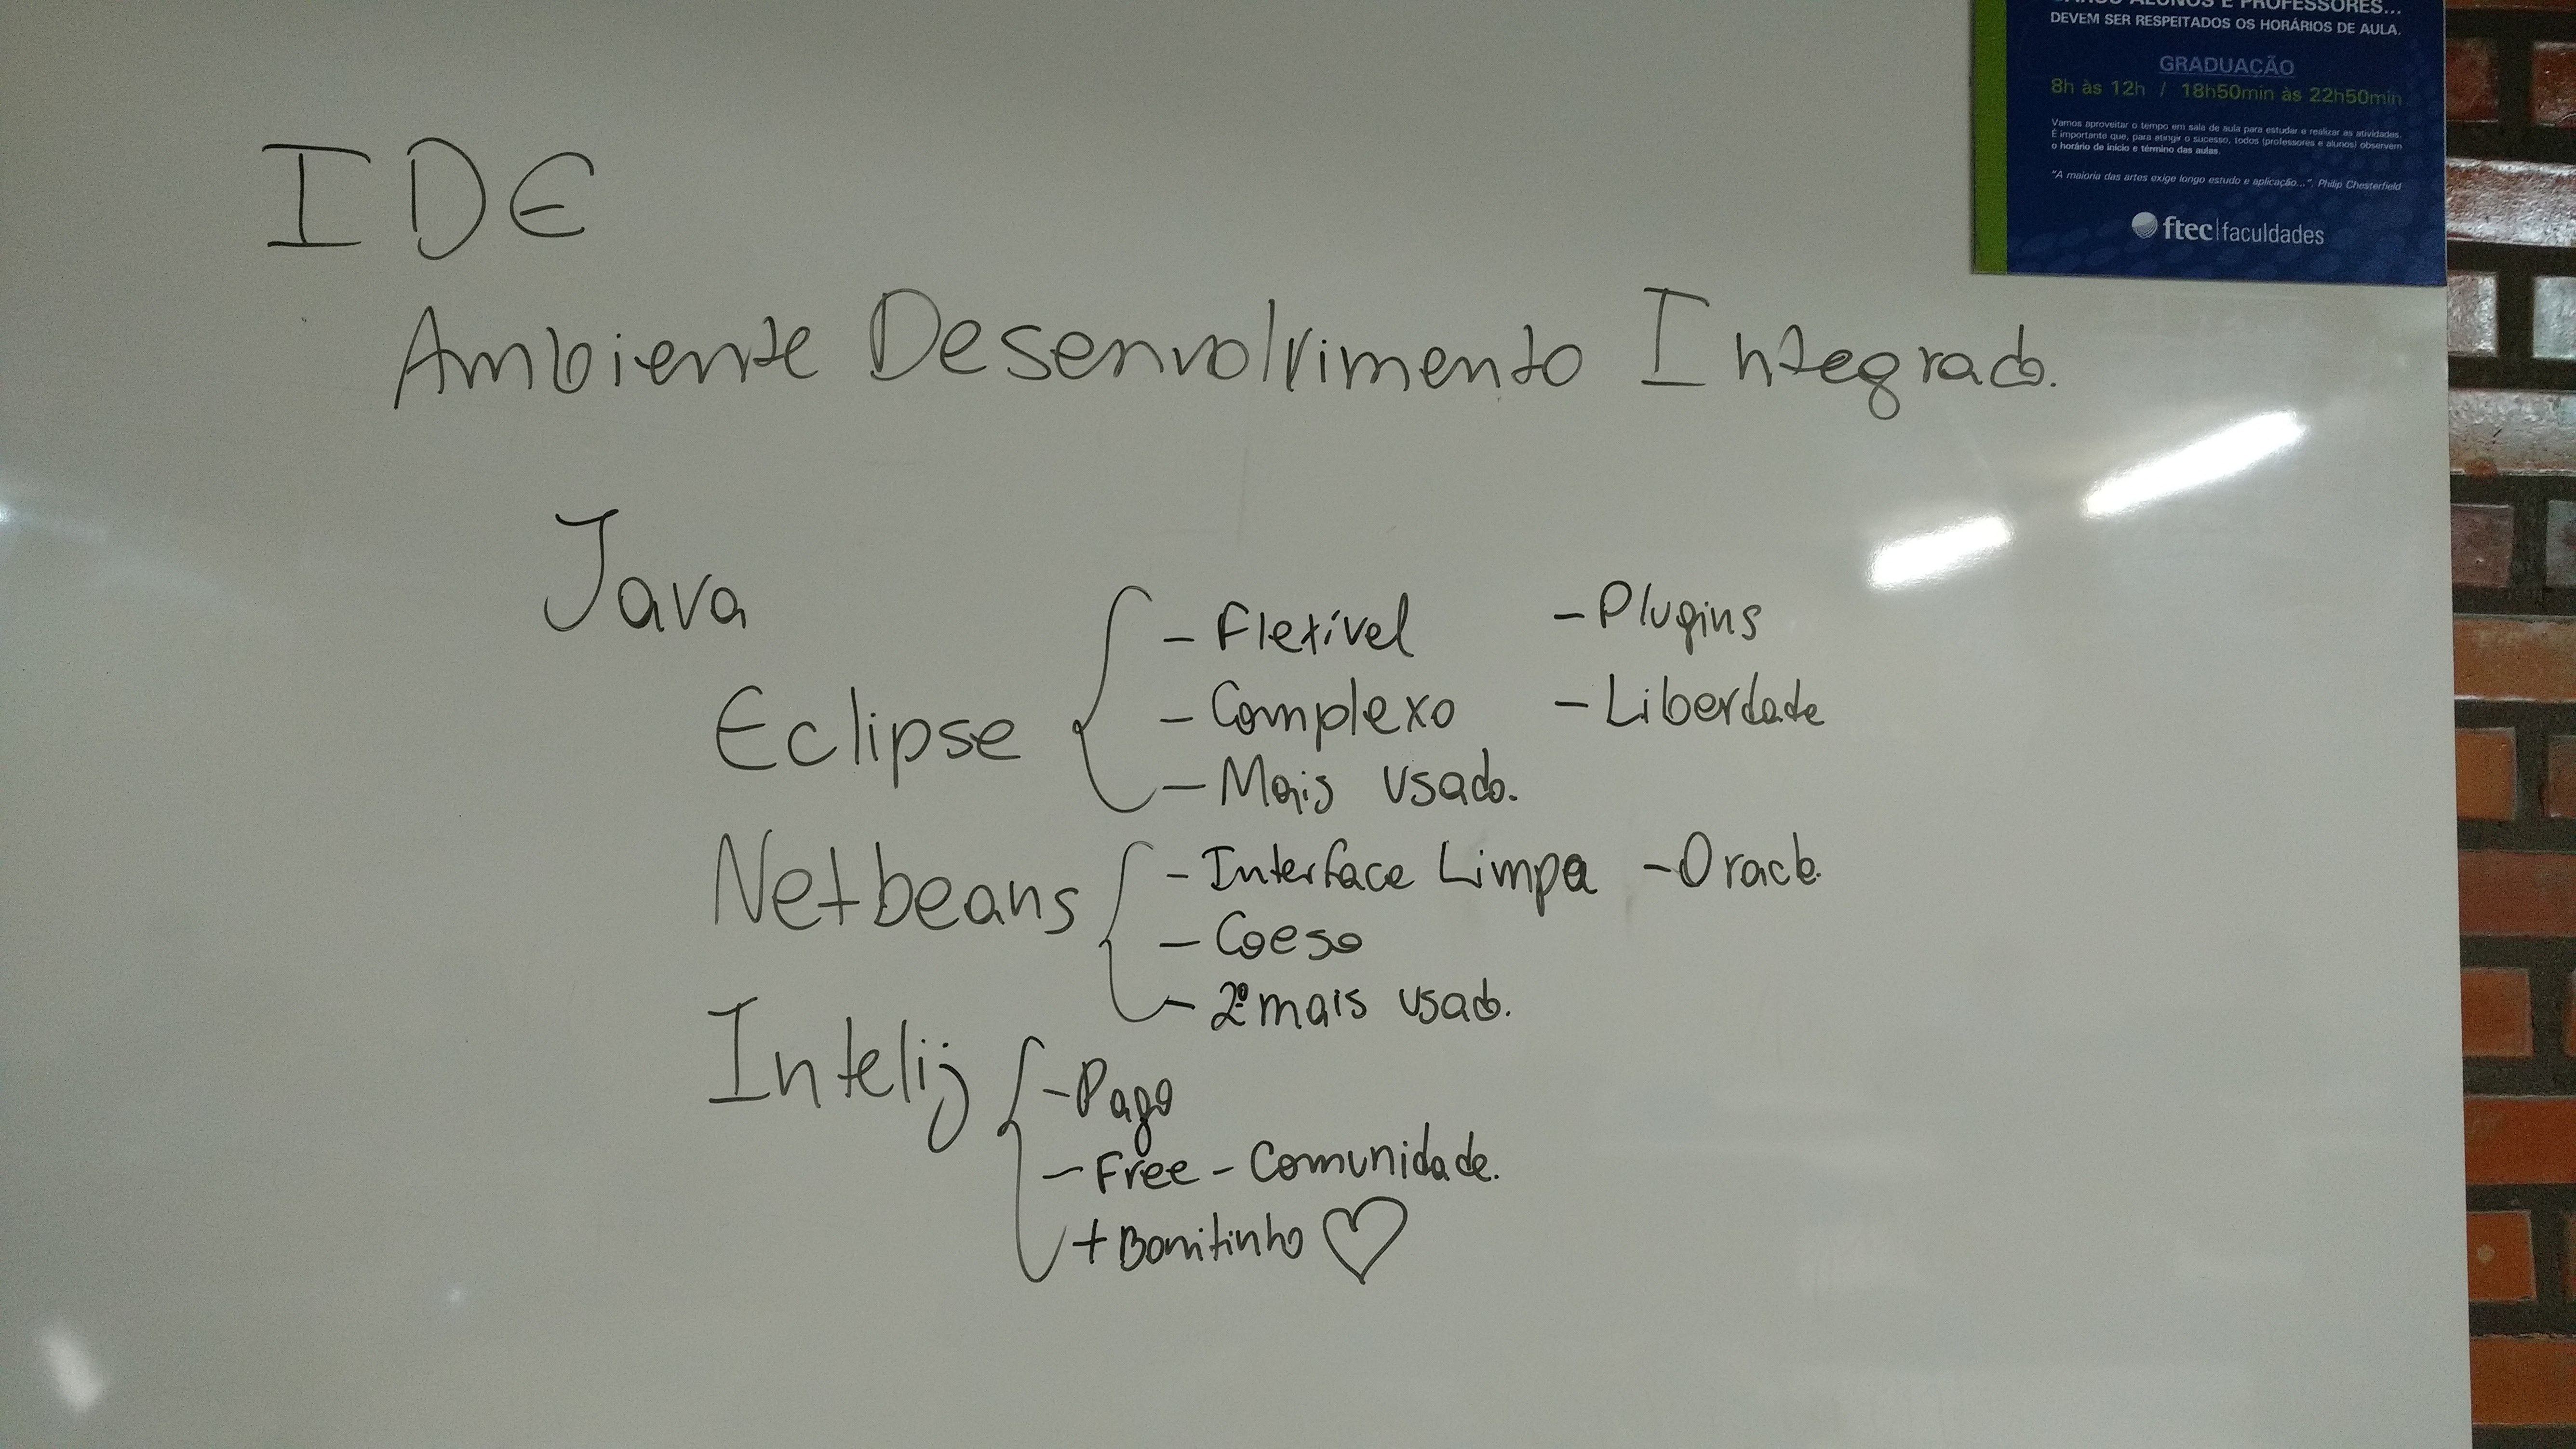 CAROS ALUNOS E PROFESSORES...
DEVEM SER RESPEITADOS OS HORÁRIOS DE AULA.
GRADUAÇÃO
8h às 12h / 18h50min às 22h50min
Vamos aproveitar o tempo em sala de aula para estudar e realizar as atividades.
É importante que, para atingir o sucesso, todos (professores e alunos) observem
o horário de início e término das aulas.
"A maioria das artes exige longo estudo e aplicação...". Philip Chesterfield
ftec|faculdades
IDE
Ambiente Desenvolvimento Integrado.
Java
Eclipse
- Flexível - Plugins
- Complexo - Liberdade
- Mais usado.
Netbeans
- Interface Limpa - Oracle.
- Coeso
- 2º mais usado.
Intelij
- Pago
- Free - Comunidade.
+ Bonitinho ♡